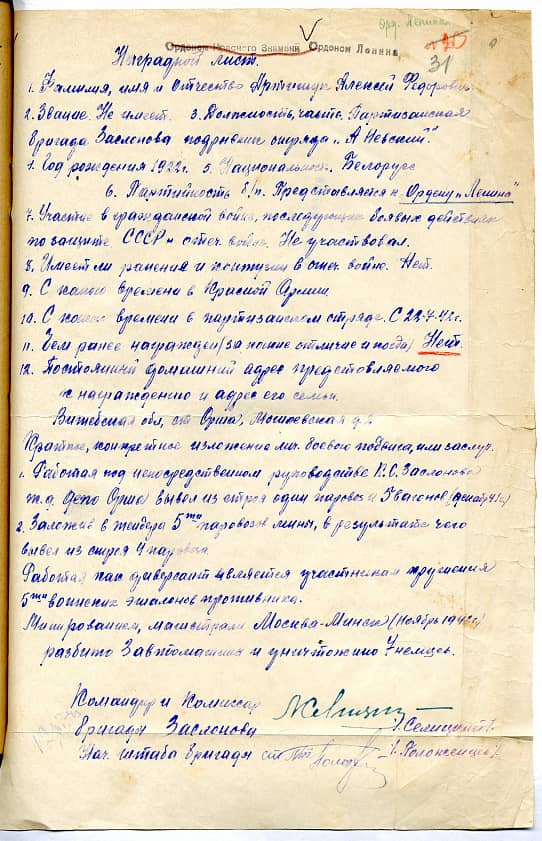 Орд. Ленина
Орденом Красного Знамени Орденом Ленина
31
Наградной лист.
1. Фамилия, имя и отчество Артишук Алексей Федорович
2. Звание. Не имеет. 3. Должность, часть. Партизанская
бригада Заслонова подрывник отряда „А Невский".
4. Год рождения 1922 г. 5. Национальность. Белорусс
6. Партийность б/п. Представляется к Ордену „Ленина"
7. Участие в гражданской войне, последующих боевых действиях
по защите СССР и отеч. войне. Не участвовал.
8. Имеет ли ранения и контузии в отеч. войне. Нет.
9. С какого времени в Красной Армии.
10. С какого времени в партизанском отряде. С 22-4-42 г.
11. Чем ранее награжден (за какие отличие и когда) Нет.
12. Постоянный домашний адрес представляемого
к награждению и адрес его семьи.
Витебская обл, ст Орша,
Краткое, конкретное изложение лич. боевого подвига, или заслуг.
1. Работая под непосредственном руководстве К.С. Заслонова
ж.д. депо Орша вывел из строя один паровоз и 5 вагонов
2. Заложив в 5ти паровозов мины, в результате чего
вывел из строя 4 паровоза.
Работая как является участникам крушения
5ти воинских эшалонов противника.
Минированием, магистрали Москва-Минск (Ноябрь 1942 г)
разбито 3 автомашины и уничтожено 7 немцев.
Командир и Комиссар
бригады Заслонова /Селицкий/.
Нач. штаба бригады ст